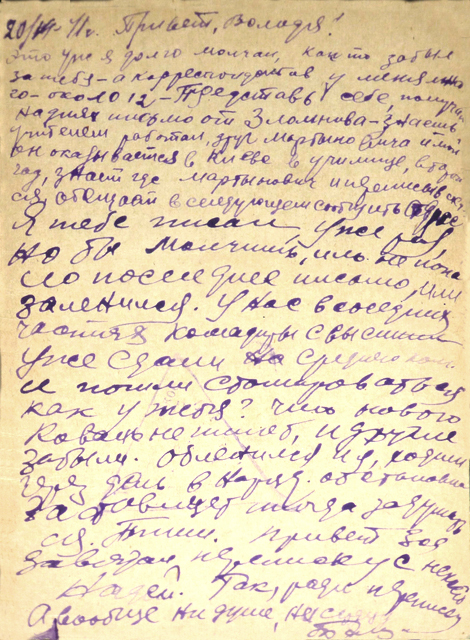 20/IV-41г. Привет, Володя!
Это уже я долго молчал, как-то забыл
за тебя - а корреспондентов у меня мно
го - около 12 - Представь себе, получаю
на днях письмо от Зломнива - знаешь
учителем работал, друг Мартыновича и мой
он оказывается в Киеве в училище, второй
год, знает где Мартынович и переписыв
ся, обещает в следующем сообщить адрес
Я тебе писал, уже раз,
но вы молчишь, иль не попа
ло последнее письмо, или
заленился. У нас в соседних
частях командиры с высшим
уже сдали на среднего ком
и пошли стажироваться
как у тебя? Что нового
Коваль не пишет, и другие
забыли. Обленился и я, ходим
через день в наряд. обстановка
заставляет иногда задумать
ся. Пиши. Привет Зоя
завязал переписку с некой
Надей. Так, ради переписки
А вообще ни душе, ни сердцу